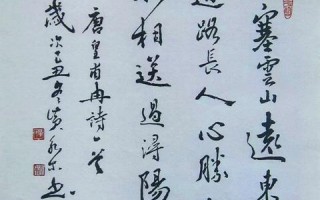 塞雲山遠東
道路長人心勝
水相送過潯陽
唐皇甫冉詩一首
歲次己丑冬黃